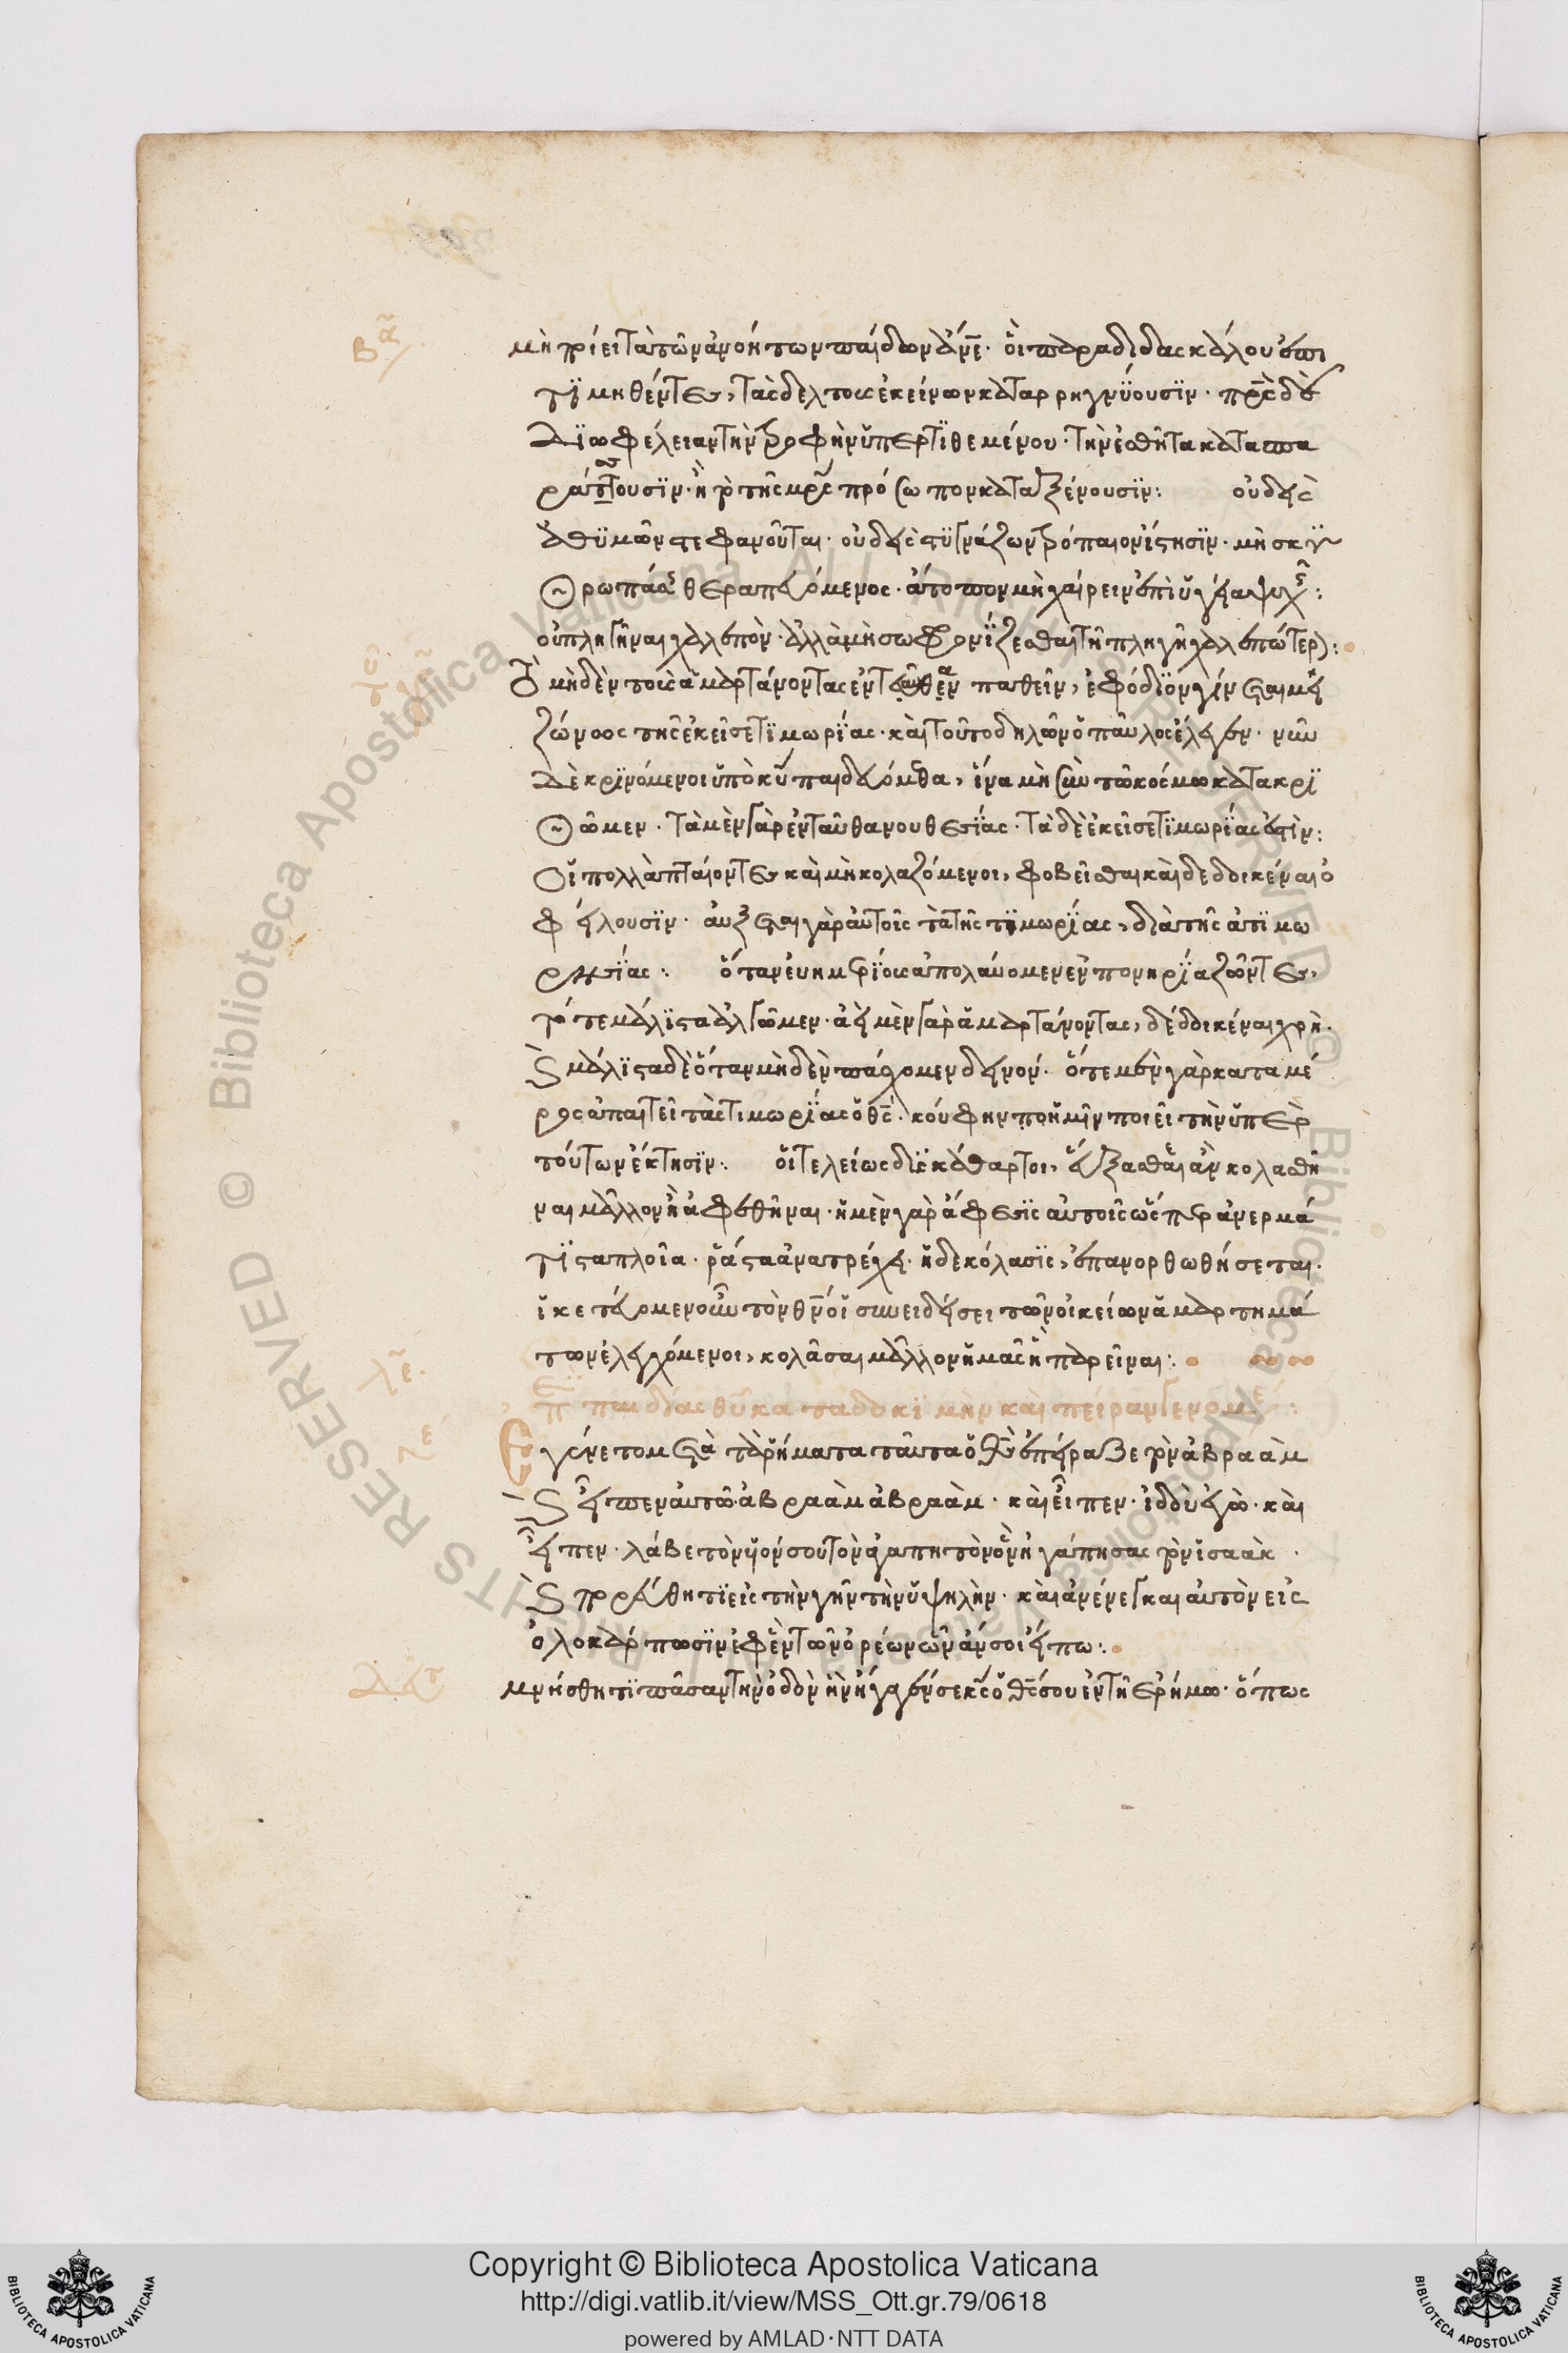 μὴ ποίει τὰ τῶν ἀνοήτων παίδων ἄνε· οἳ παρὰ διδασκάλου ἐπι
τϊμηθέντες, τὰς δέλτους ἐκείνων καταρρηγνϋουσϊν· πρς δὲ
δϊ ὠφέλειαν τὴν τροφὴν ὑπερτϊθεμένου· τὴν ἐσθῆτα κατασπα
ράττουσϊν· ἢ τὸ τῆς μρς πρόσωπον καταξένουσϊν: οὐδεὶς
ἀθϋμῶν στεφανοῦται· οὐδεὶς στϋγνάζων τρόπαιον ἵστησϊν· μὴ σκϋ
θρωπάσῃς θεραπευόμενος· ἄτοπον μὴ χαίρειν ἐπὶ ὑγείᾳ ψυχῆς:
οὐ πληγῆναι χαλεπὸν· ἀλλὰ μὴ σωφρονϊζεσθαι τῇ πληγῇ χαλεπώτερον:
Τὸ μηδὲν τοὺς ἁμαρτάνοντας ἐνταῦθα παθεῖν, ἐφόδϊον γίνεται μεί
ζονος τῆς ἐκεῖσε τϊμωρϊας· καὶ τοῦτο δηλῶν ὁ παῦλος ἔλεγεν· νῦν
δὲ κρϊνόμενοι ὑπὸ κυ παιδευόμεθα, ἵνα μὴ σὺν τῷ κόσμῳ κατακρϊ
θῶμεν· τὰ μὲν γὰρ ἐνταῦθα νουθεσϊας· τὰ δὲ ἐκεῖσε τϊμωρϊας ἐστὶν:
Οἱ πολλὰ πταίοντες καὶ μὴ κολαζόμενοι, φοβεῖσθαι καὶ δεδοικέναι ὀ
φείλουσϊν· αὔξεται γὰρ αὐτοῖς τὰ τῆς τϊμωρϊας, διὰ τῆς ἀτϊμω
ρησϊας: ὅταν ἐν εὐημερϊοις ἀπολαύομεν ἐν πονηρϊᾳ ζῶντες,
τότε μάλϊστα ἀλγῶμεν· ἀεὶ μὲν γὰρ ἁμαρτάνοντας, δεδοικέναι χρὴ·
καὶ μάλϊστα δὲ ὅταν μηδὲν πάσχομεν δεινόν· ὅτε μὲν γὰρ κατὰ μέ
ρος ἀπαιτεῖ τὰς τιμωρϊας ὁ θς· κούφην ἡμῖν ποιεῖ τὴν ὑπὲρ
τούτων ἔκτησϊν: οἱ τελείως διεκάθαρτοι, εὔξασθαι ἂν κολασθῆ
ναι μᾶλλον ἢ ἀφεθῆναι· ἡ μὲν γὰρ ἄφεσϊς αὐτοῖς ὥσπερ ἀνερμά
τϊστα πλοῖα· ῥᾷστα ἀνατρέχει· ἡ δὲ κόλασϊς, ἐπανορθωθήσεται·
ἱκετεύομεν οὖν τὸν θν οἱ συνειδήσει τῶν οἰκείων ἁμαρτημά
των ἐλεγχόμενοι, κολᾶσαι μᾶλλον ἡμᾶς ἢ παρεῖναι:
περὶ παιδείας θυ κατὰ δοκϊμὴν καὶ πεῖραν γενομένης:
Ἐγένετο μετὰ τὰ ῥήματα ταῦτα ὁ θς ἐπείραζε τὸν ἀβραὰμ
καὶ εἶπεν αὐτῷ ἀβραὰμ ἀβραὰμ· καὶ εἶπεν· ἰδοὺ ἐγὼ· καὶ
εἶπεν· λάβε τὸν υἱόν σου τὸν ἀγαπητὸν ὃν ἠγάπησας τὸν ἰσαὰκ·
καὶ πορεύθητϊ εἰς τὴν γῆν τὴν ὑψηλὴν· καὶ ἀνένεγκαι αὐτὸν εἰς
ὁλοκάρπωσϊν ἐφ' ἓν τῶν ὀρέων ὧν ἄν σοι εἴπω:
μνήσθητϊ πᾶσαν τὴν ὁδὸν ἣν ἤγαγέν σε κς ὁ θς σου ἐν τῇ ἐρήμῳ· ὅπως
Copyright © Biblioteca Apostolica Vaticana
http://digi.vatlib.it/view/MSS_Ott.gr.79/0618
powered by AMLAD·NTT DATA